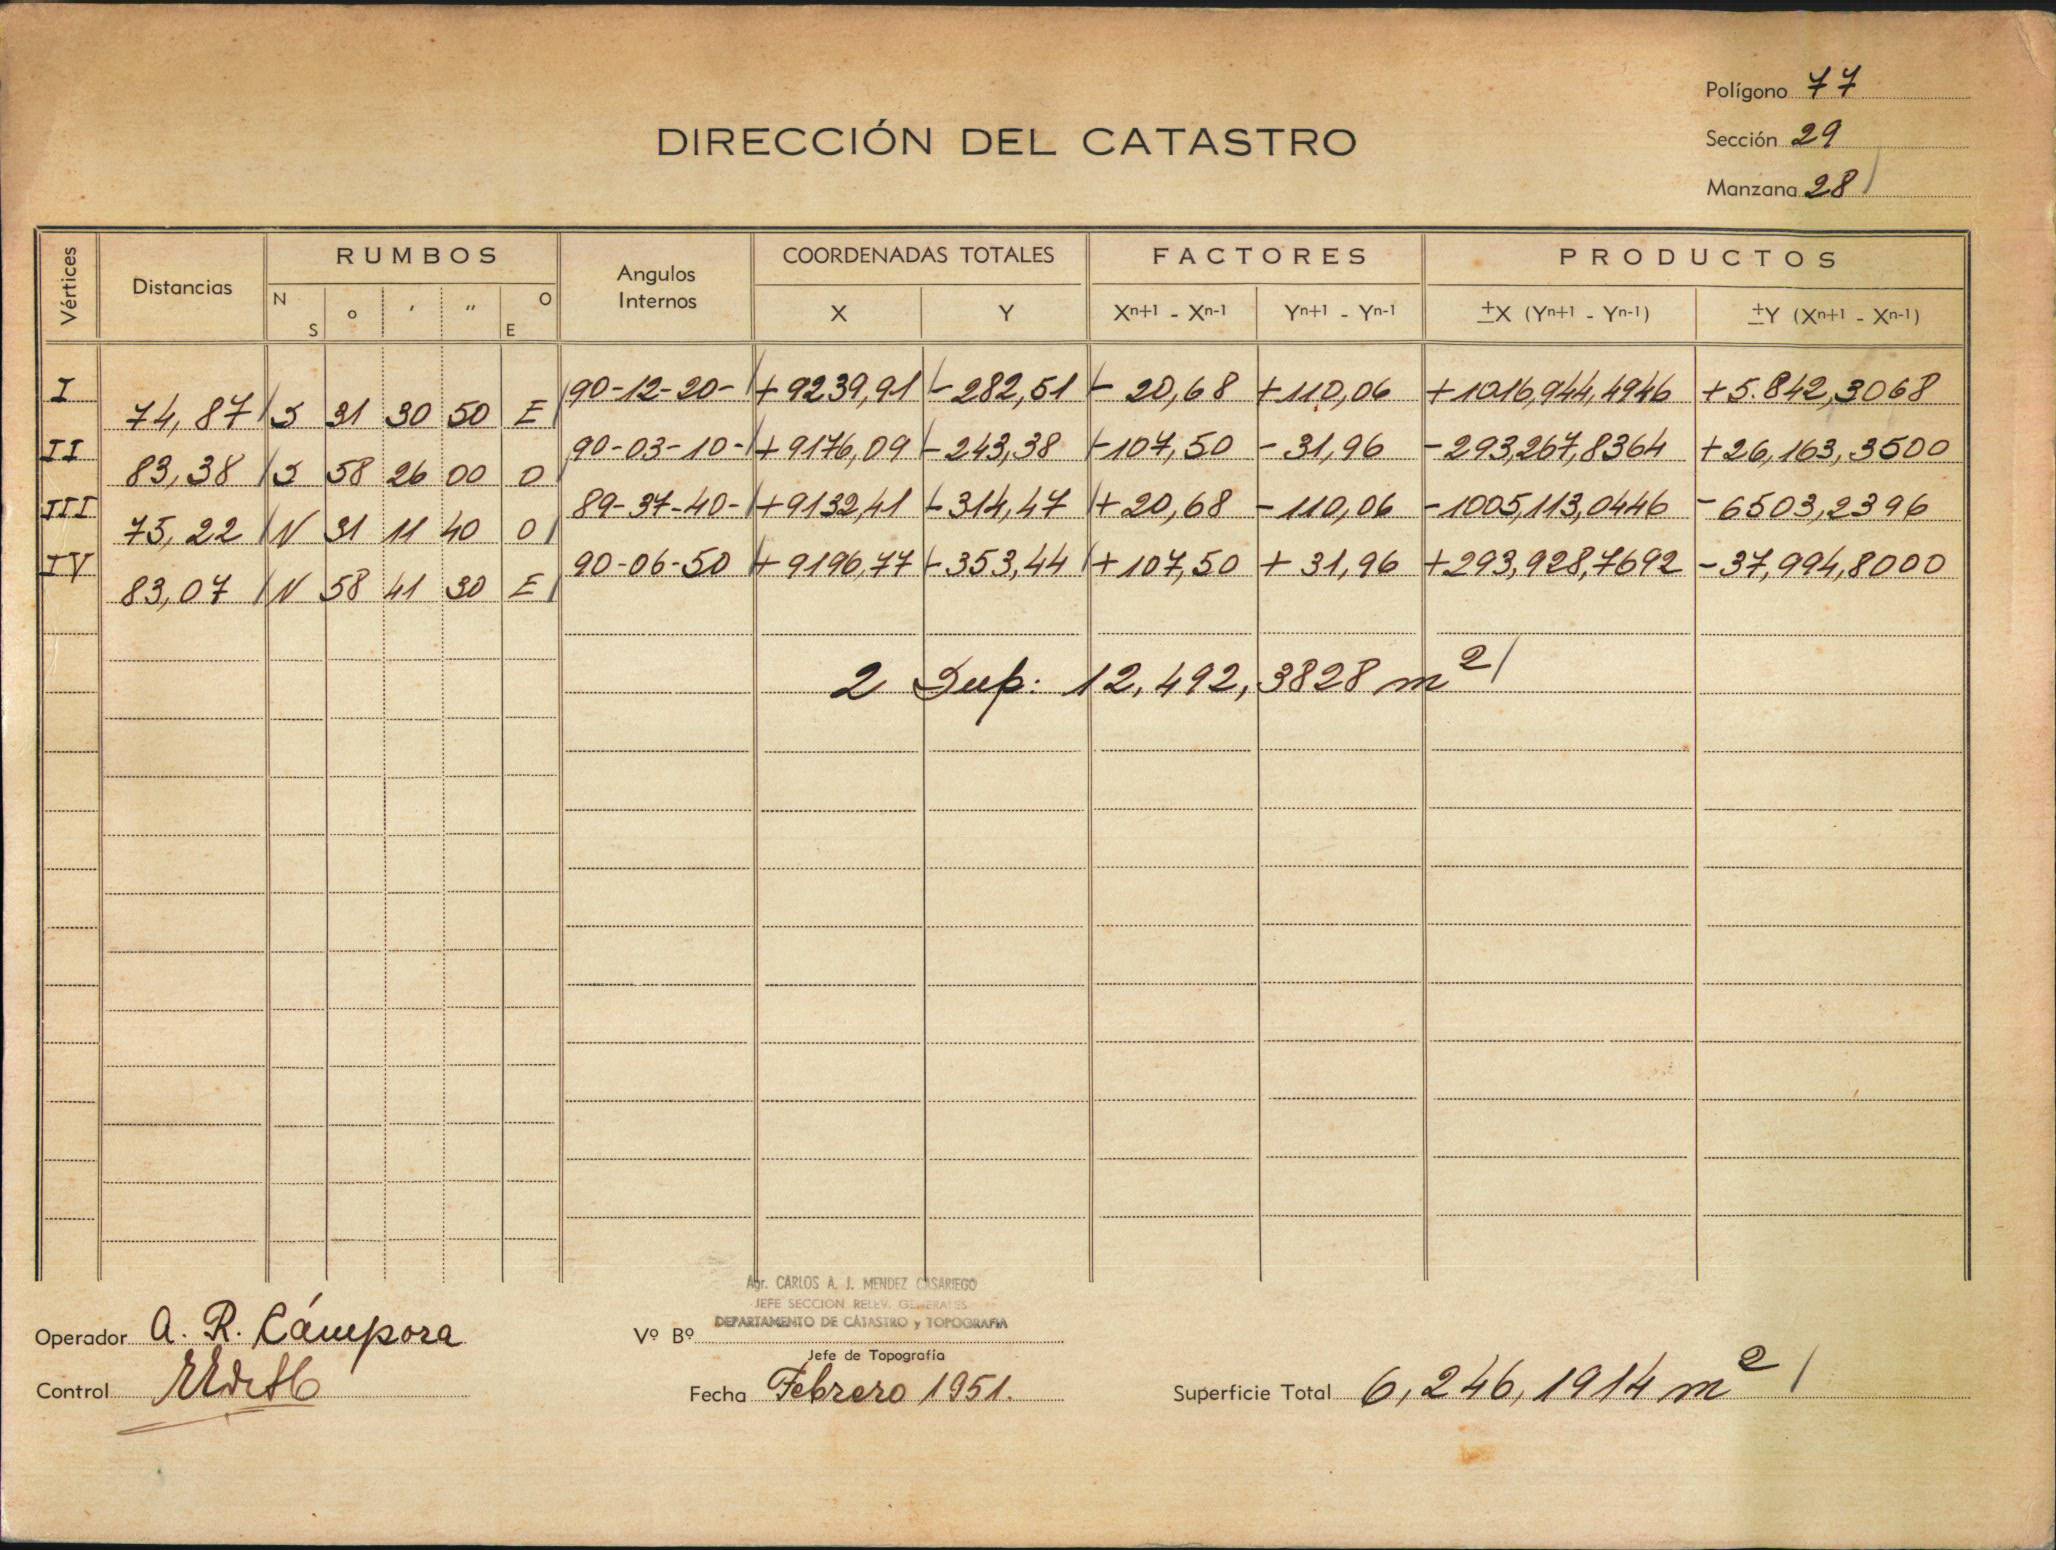 Polígono 77
DIRECCIÓN DEL CATASTRO
Sección 29
Manzana 28
Vértices Distancias RUMBOS Angulos Internos COORDENADAS TOTALES FACTORES PRODUCTOS
N S ° ' " O E X Y Xn+1 - Xn-1 Yn+1 - Yn-1 ±X (Yn+1 - Yn-1) ±Y (Xn+1 - Xn-1)
I 90-12-20- +9239,91 -282,51 -20,68 +110,06 +1016,944,4946 +5.842,3068
74,87 S 31 30 50 E
II 90-03-10- +9176,09 -243,38 -107,50 -31,96 -293,267,8364 +26,163,3500
83,38 S 58 26 00 O
III 89-37-40- +9132,41 -314,47 +20,68 -110,06 -1005,113,0446 -6503,2396
75,22 N 31 11 40 O
IV 90-06-50 +9196,77 -353,44 +107,50 +31,96 +293,928,7692 -37,994,8000
83,07 N 58 41 30 E
2 Sup: 12,492,3828 m2
Agr. CARLOS A. J. MENDEZ CASARIEGO
JEFE SECCION RELEV. GENERALES
DEPARTAMENTO DE CATASTRO y TOPOGRAFIA
Operador A. R. Cámpora Vº Bº
Jefe de Topografía
Control Fecha Febrero 1951. Superficie Total 6,246,1914 m2